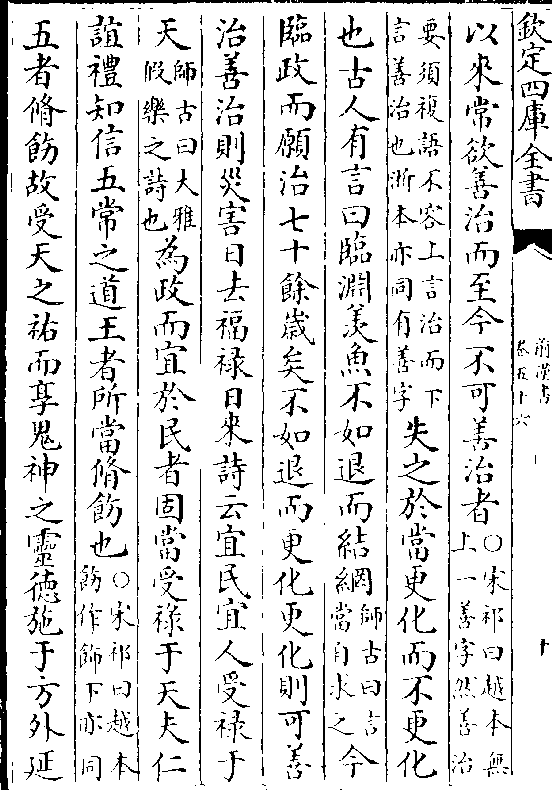 欽定四庫全書
前漢書
卷五十六
十
以來常欲善治而至今不可善治者○宋祁曰越本無上一善字然善治
要須複語不容上言治而下言善治也浙本亦同有善字失之於當更化而不更化
也古人有言曰臨淵羨魚不如退而結網師古曰言當自求之今
臨政而願治七十餘歲矣不如退而更化更化則可善
治善治則災害日去福禄日來詩云宜民宜人受禄于
天師古曰大雅假樂之詩也為政而宜於民者固當受禄于天夫仁
誼禮知信五常之道王者所當脩飭也○宋祁曰越本飭作飾下亦同
五者脩飭故受天之祐而享鬼神之靈德施于方外延